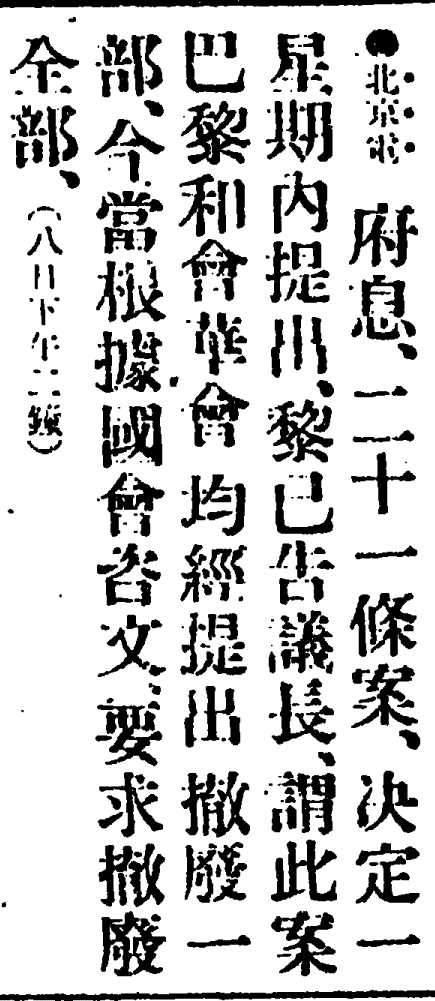 ●北京電　府息、二十一條案、決定一
星期內提出、黎已告議長、謂此案
巴黎和會華會均經提出撤廢一
部、今當根據國會咨文、要求撤廢
全部、（八日下午二鐘）